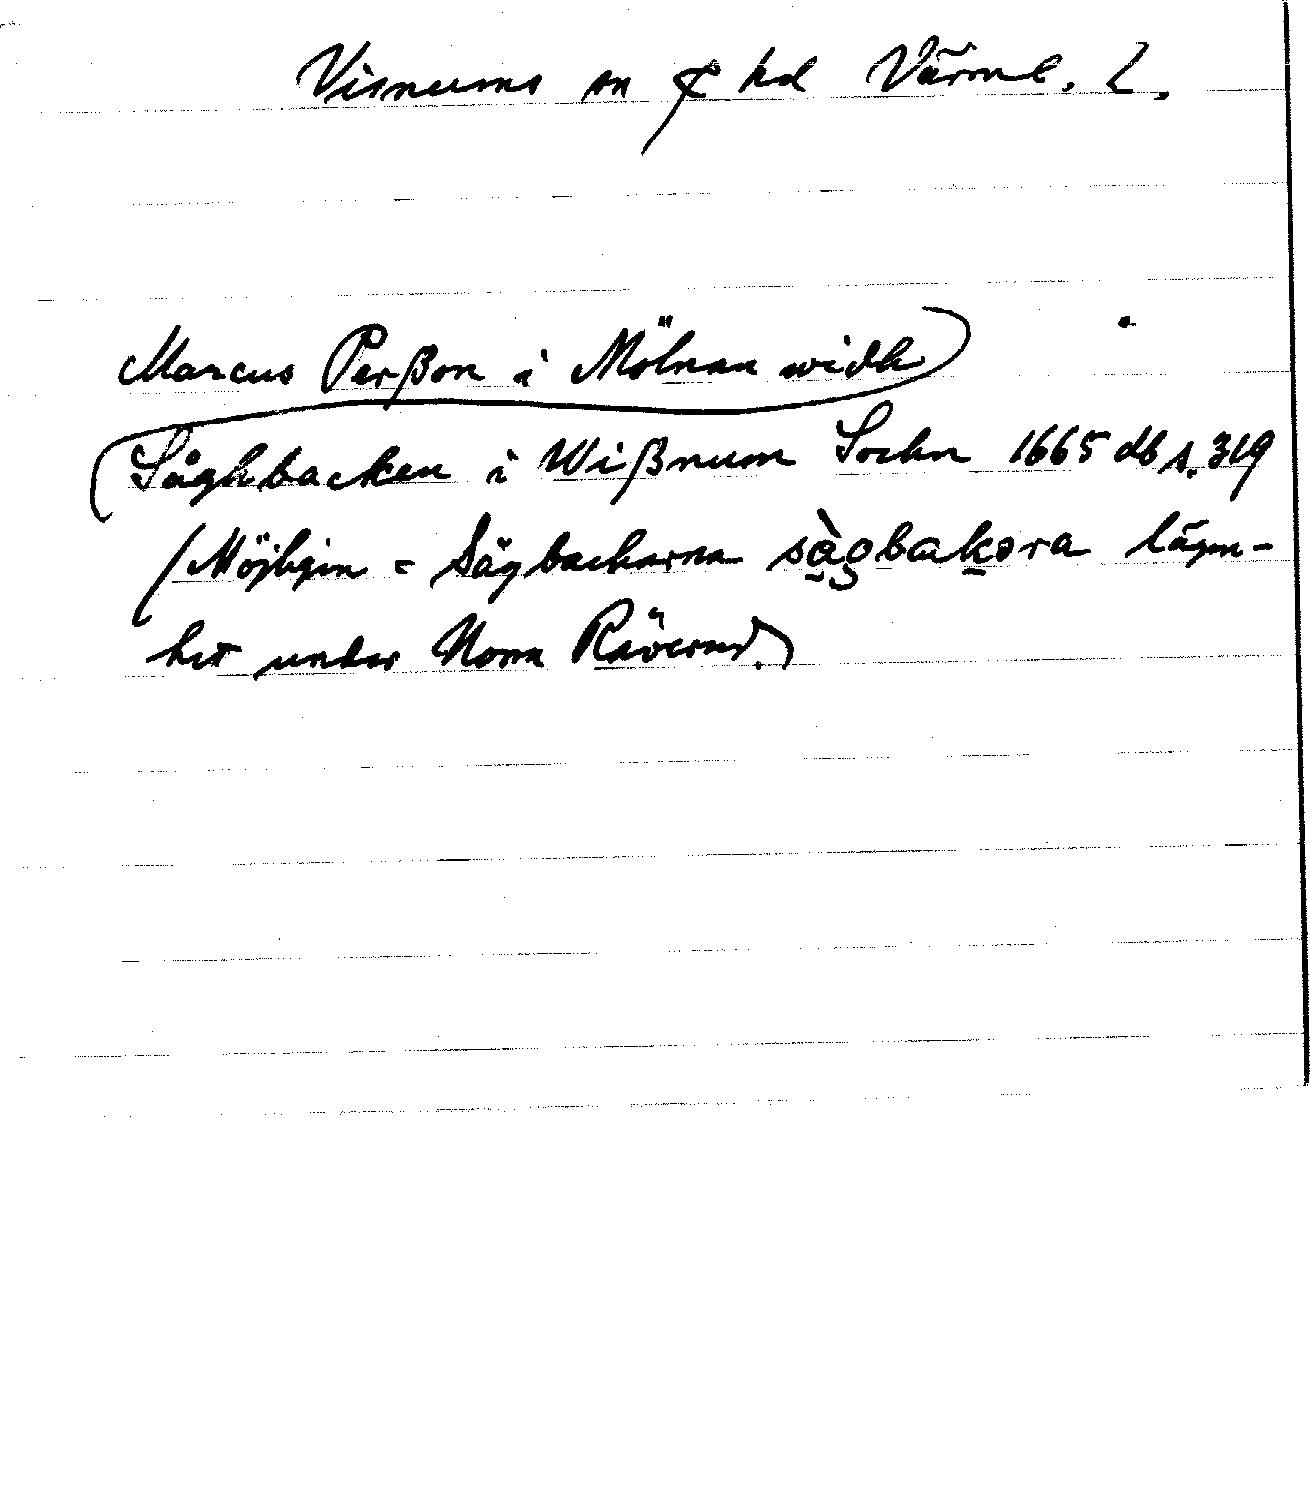 Visnums sn & hd Värml. l.
Marcus Perßon i Mölnan widh
Såghbacken i Wißnum Sochn 1665 db s. 319
(Möjligen = Sågbackarna sàgbakəra lägen-
het under Norra Råverud.)